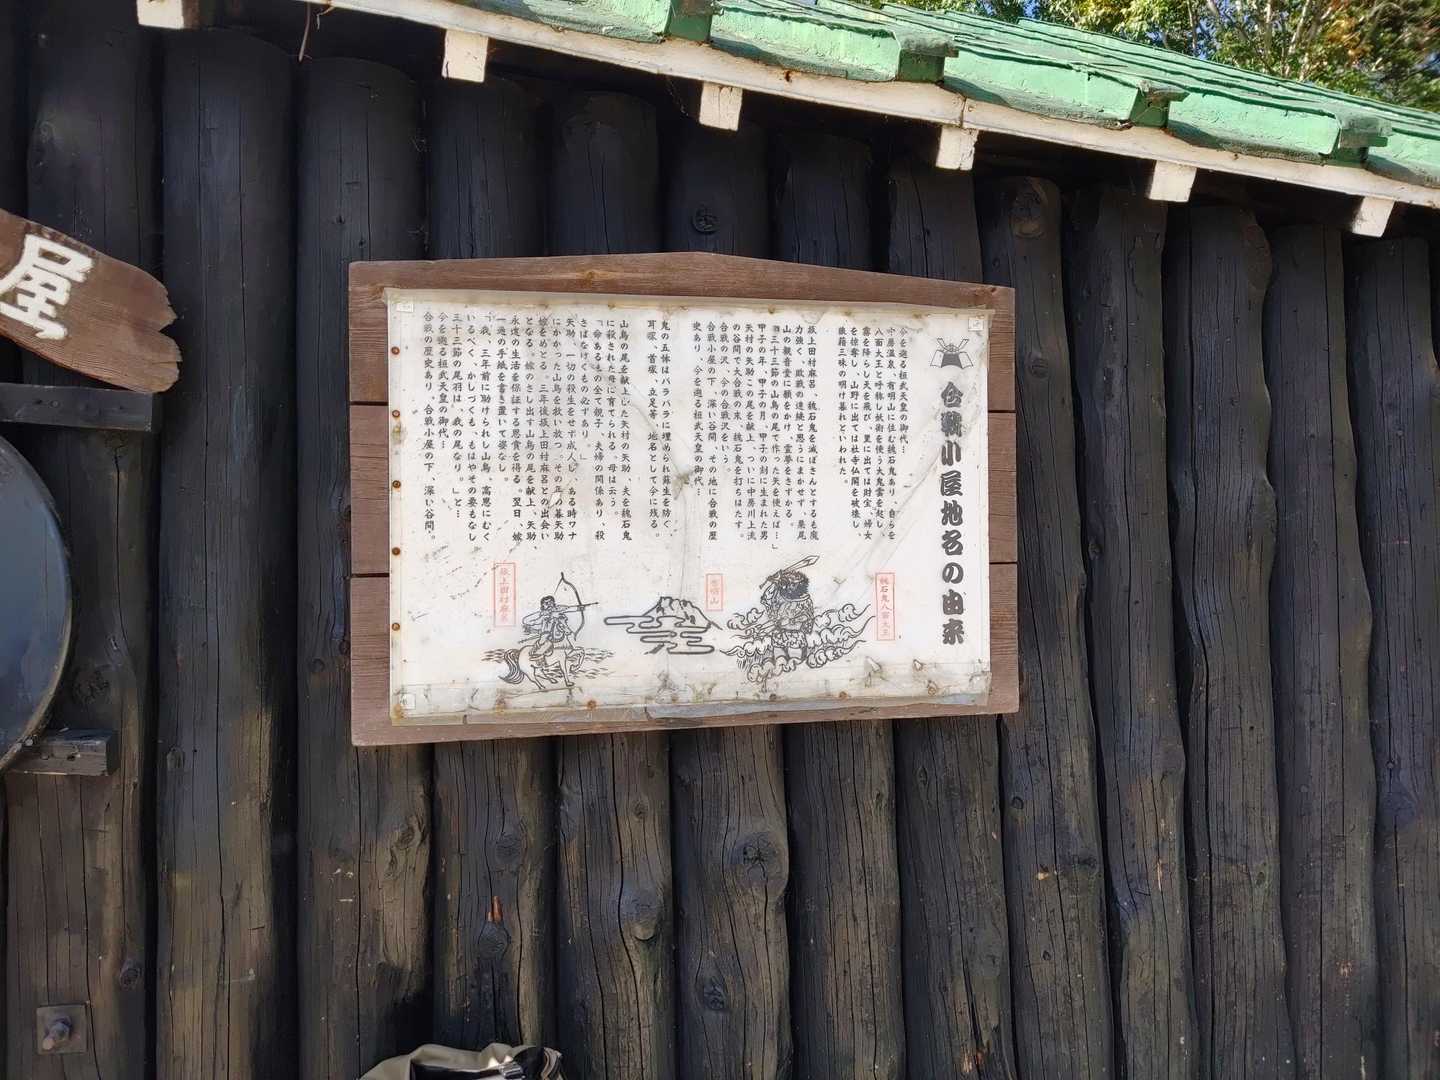 合戦小屋地名の由来
今を遡る桓武天皇の御代…
中房温泉、有明山に住む魏石鬼あり、自らを
八面大王と呼称し妖術を使う大鬼雲を起し、
霧を降らし天を飛び、里に出ては財宝、婦女
を掠奪し、山野に出ては社寺仏閣を破壊し
狼藉三昧の明け暮れといわれた。
坂上田村麻呂、魏石鬼を滅ぼさんとするも魔
力強く、敗戦の連続と思うにまかせず、栗尾
山の観音堂に願をかけ、霊夢をさずかる。
「三十三節の山鳥の尾で作った矢を使えば…」
甲子の年、甲子の月、甲子の刻に生まれた男
矢村の矢助この尾を献上、ついに中房川上流
の谷間で大合戦の末、魏石鬼を打ちはたす。
合戦の沢、今の合戦沢をいう。
合戦小屋の下、深い谷間、その地に合戦の歴
史あり、今を遡る桓武天皇の御代…
鬼の五体はバラバラに埋められ蘇生を防ぐ、
耳塚、首塚、立足等、地名として今に残る。
山鳥の尾を献上した矢村の矢助、夫を魏石鬼
に殺された母に育てられる。母は云う。
「命あるもの全て親子、夫婦の関係あり、殺
さばなげくもの必ずあり。」
矢助、一切の殺生をせず成人し、ある時ワナ
にかかった山鳥を救い放つ。その年の暮矢助
嫁をめとる。三年後坂上田村麻呂との出会い
となる。嫁のさし出す山鳥の尾を献上、矢助、
永遠の生活を保証する恩賞を得る。翌日、嫁
一通の手紙を書き置いて姿なし。
「我、三年前に助けられし山鳥、高恩にむく
いるべく、かしづくも、もはやその要もなし
三十三節の尾羽は、我の尾なり。」と…
今を遡る桓武天皇の御代…
合戦の歴史あり、合戦小屋の下、深い谷間。
魏石鬼八面大王
有明山
坂上田村麻呂
屋